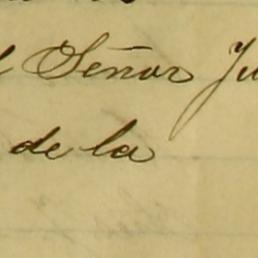 l Señor Ju
de la